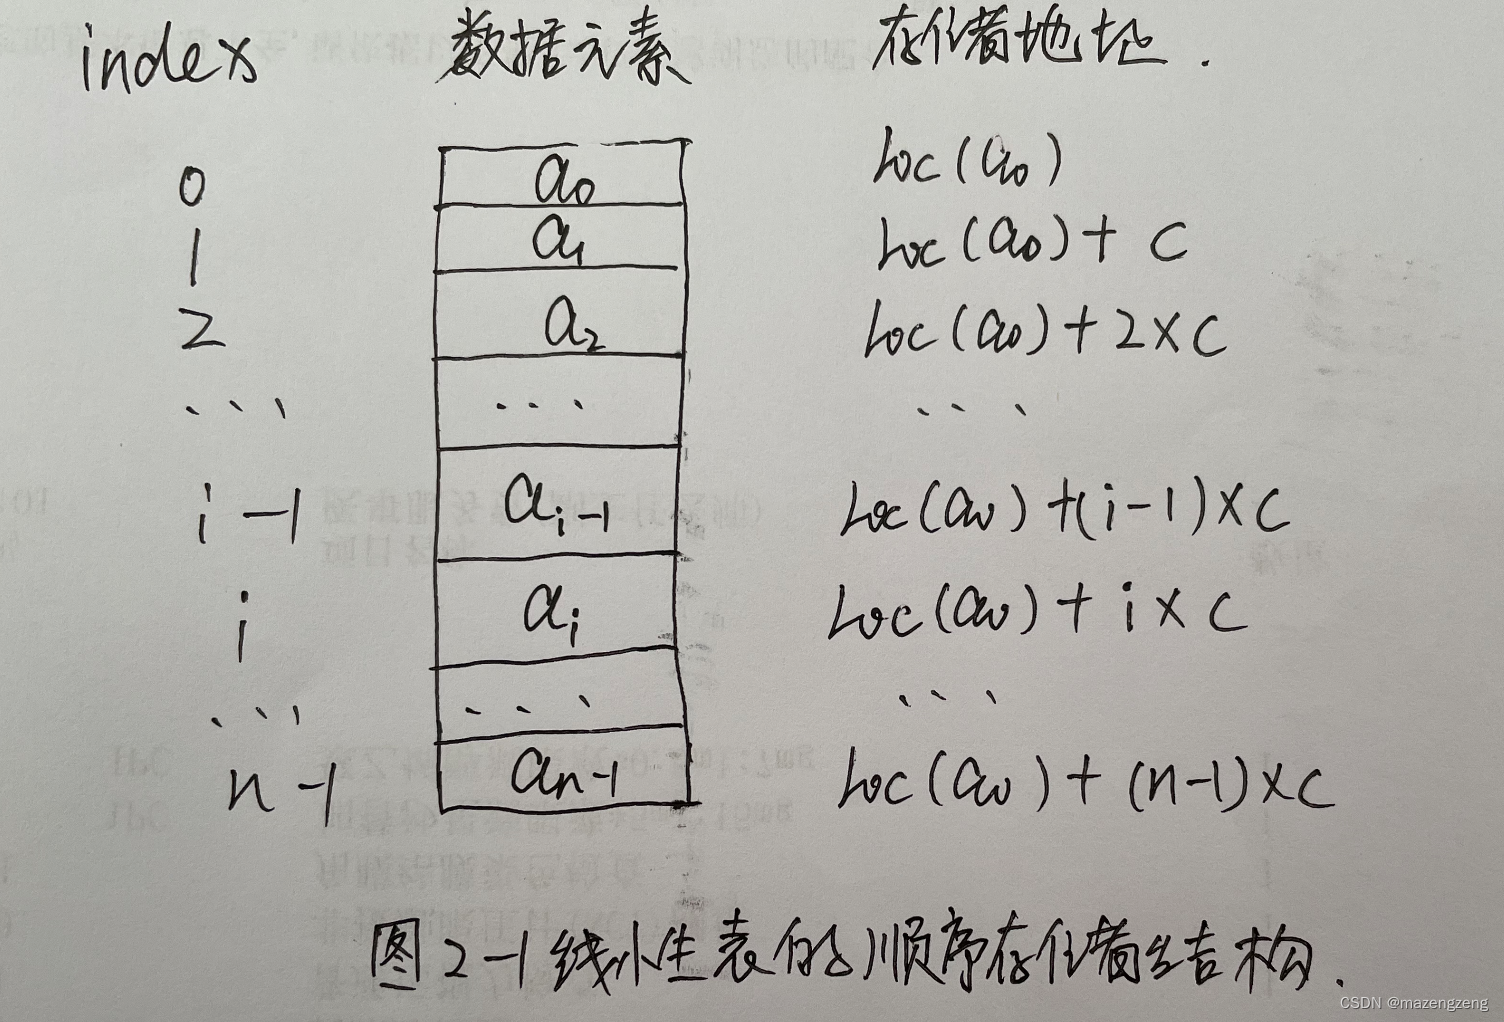 index 数据元素 存储地址.
0 a0 Loc(a0)
1 a1 Loc(a0)+C
2 a2 Loc(a0)+2×C
... ... ...
i-1 ai-1 Loc(a0)+(i-1)×C
i ai Loc(a0)+i×C
... ... ...
n-1 an-1 Loc(a0)+(n-1)×C
图2-1线性表的顺序存储结构.
CSDN @mazengzeng